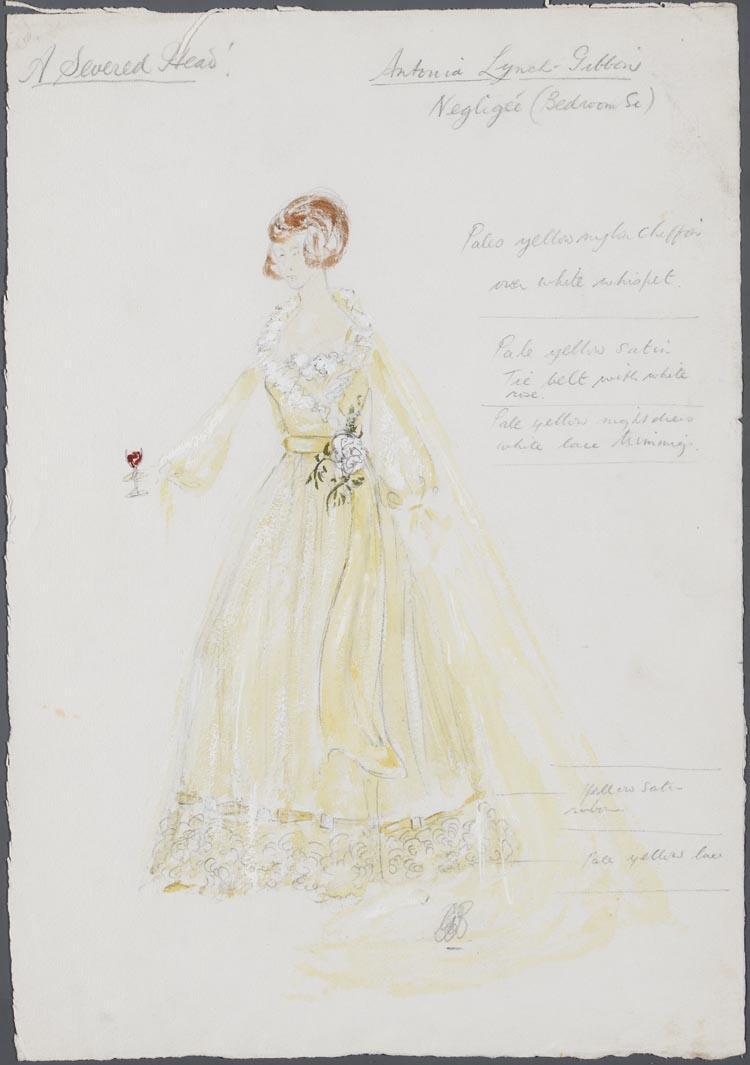 A Severed Head!
Antonia Lynch-Gibbon
Negligée (Bedroom Sc)
Pales yellow nylon Chiffon
over white whispet.
Pale yellow satin
Tie belt with white
rose.
Pale yellow nightdress
white lace trimming.
Yellow satin
Pale yellow lace